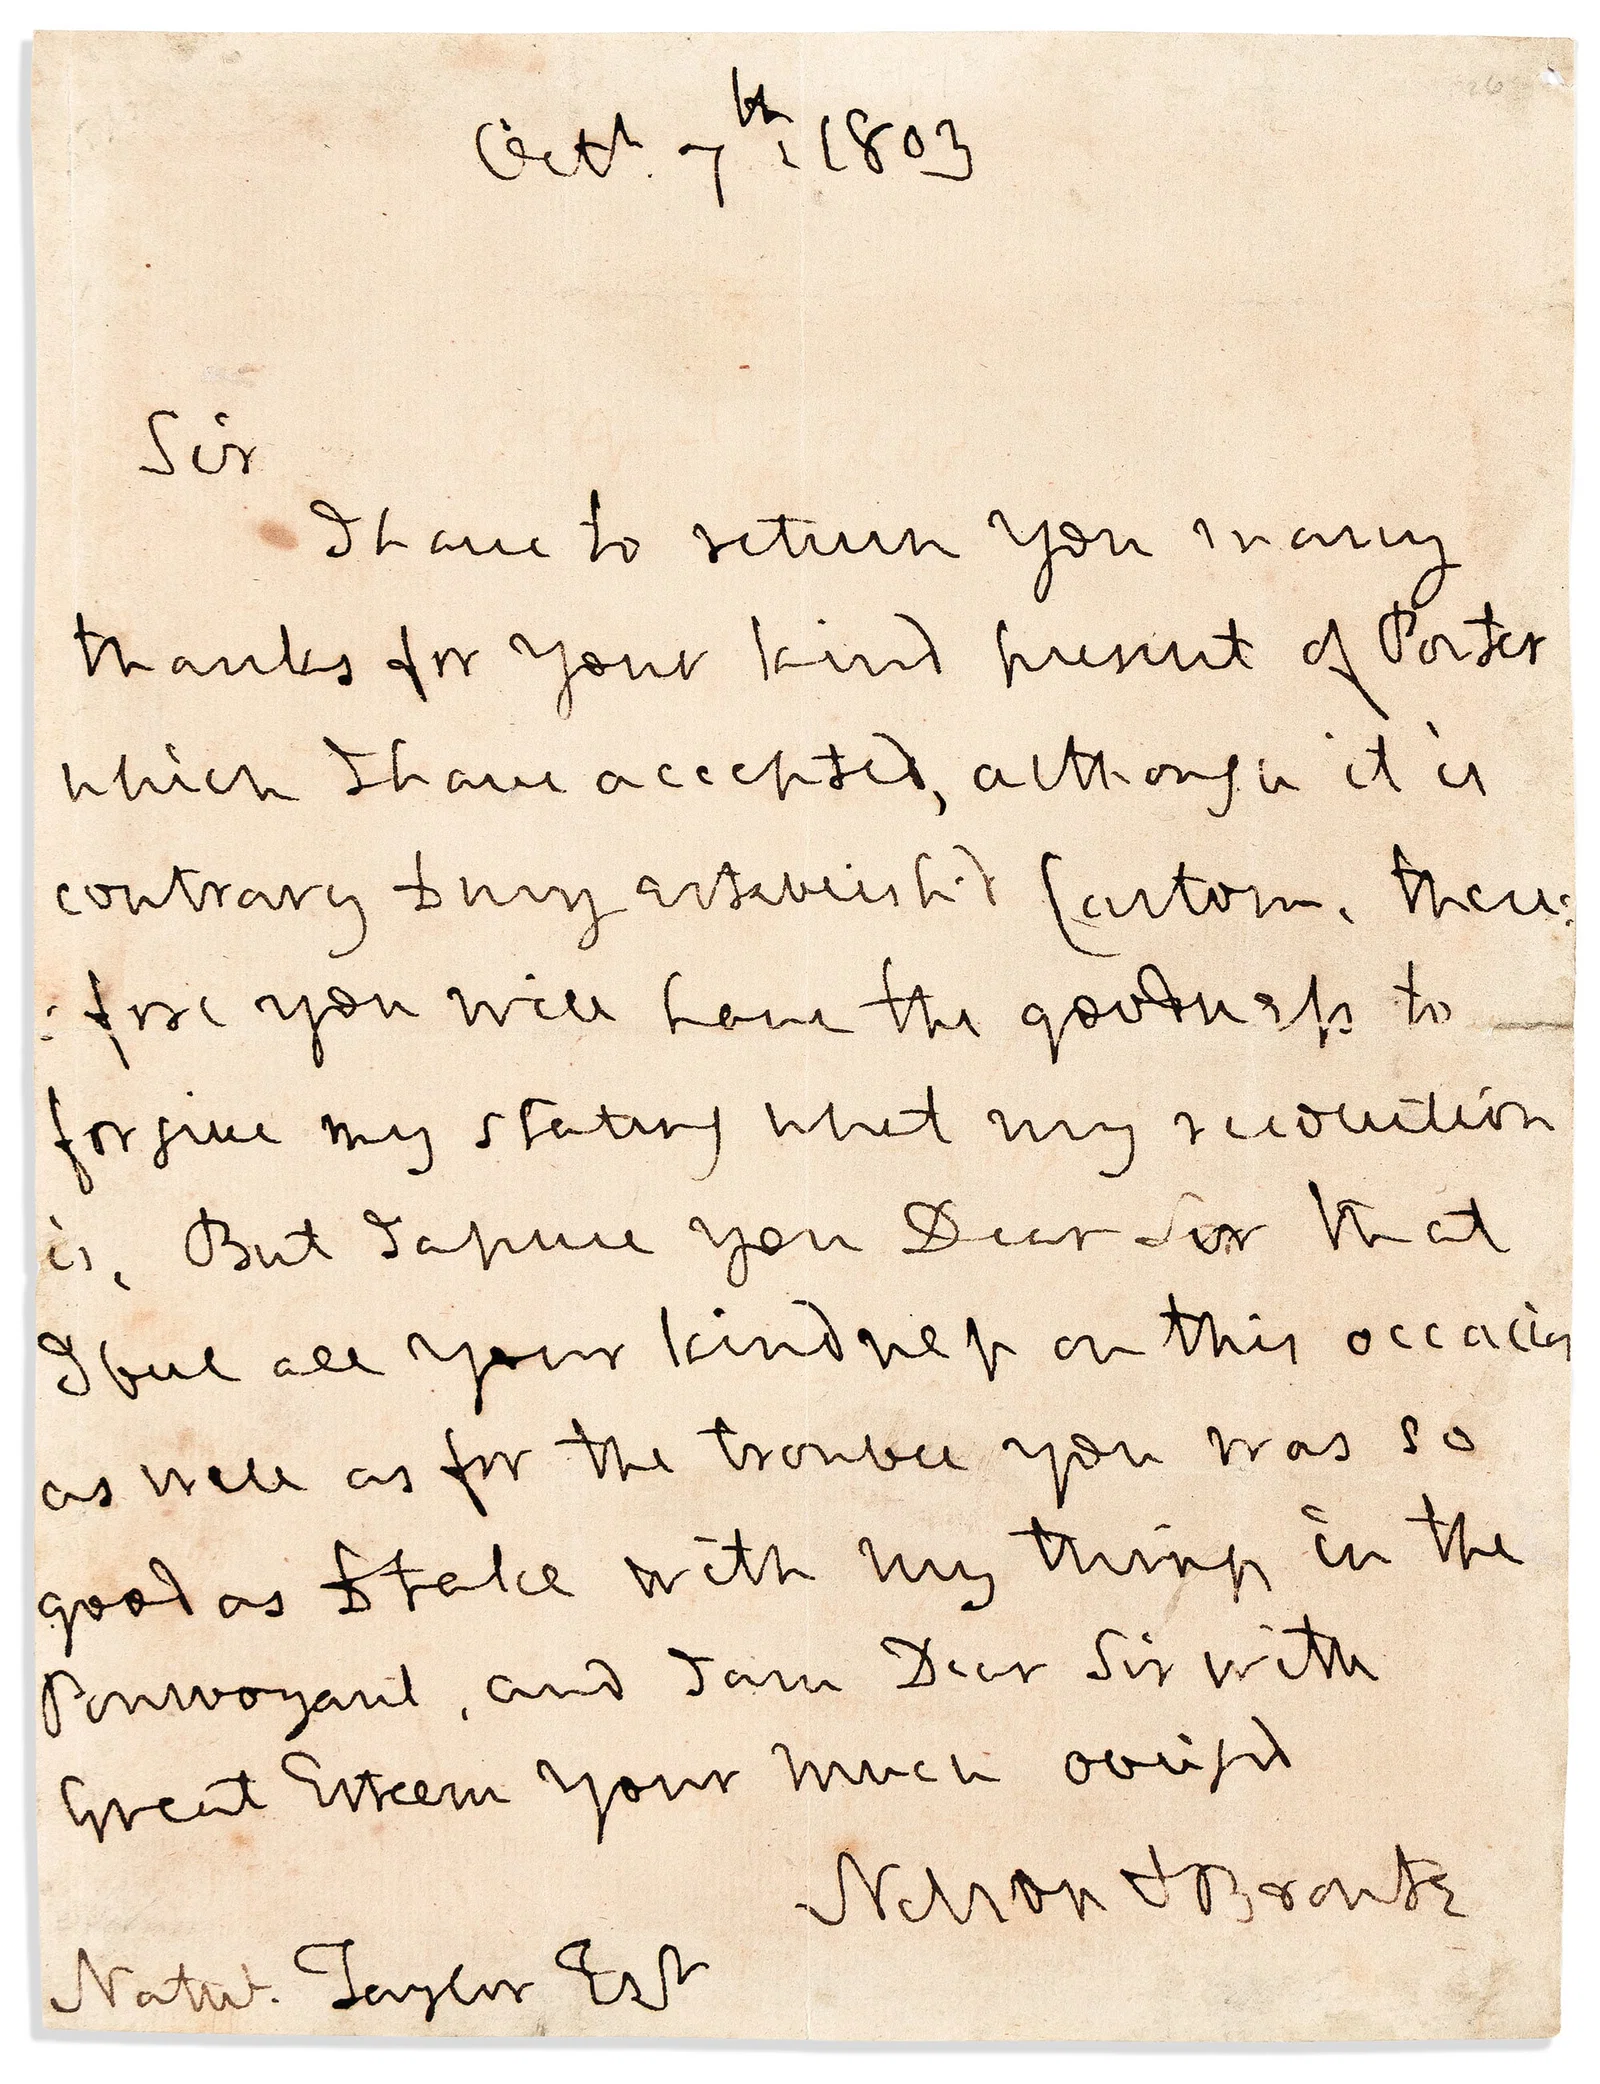 Octr. 7th: 1803
Sir
I have to return you many
thanks for your kind present of Porter
which I have accepted, although it is
contrary to my establish'd Custom, there:
:fore you will have the goodness to
forgive my stating what my resolution
is, But I assure you Dear Sir that
I feel all your kindness on this occasion
as well as for the trouble you was so
good as to take with my things in the
and I am Dear Sir with
Great Esteem your much oblig'd
Nelson & Bronte
Nathl. Taylor Esqr